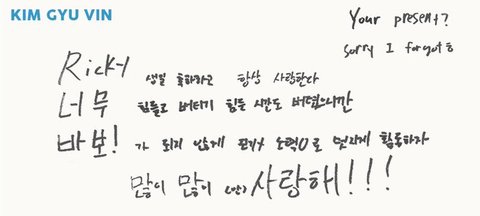 KIM GYU VIN
Your present?
Sorry I forgot
Ricky 생일 축하하고 항상 사랑한다
너무 힘들고 버티기 힘든 시간도 버텼으니깐
바보! 가 되지 않게 노력으로 멋지게 활동하자
많이 많이 사랑해!!!